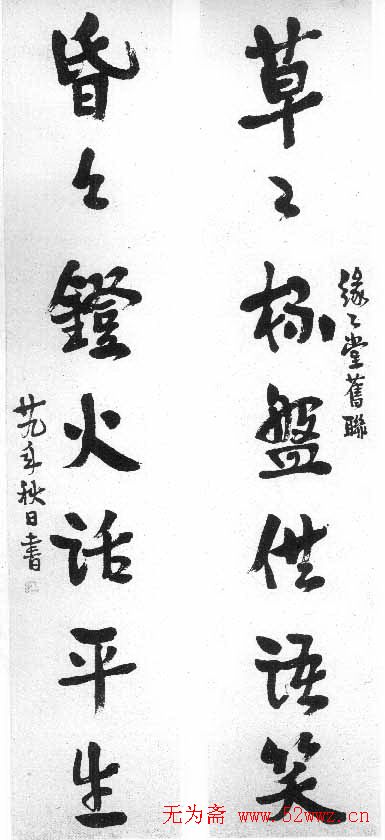 緣々堂舊聯
草々杯盤供語笑
昏々鐙火話平生
廿九年秋日書
无为斋 www.52wwz.cn